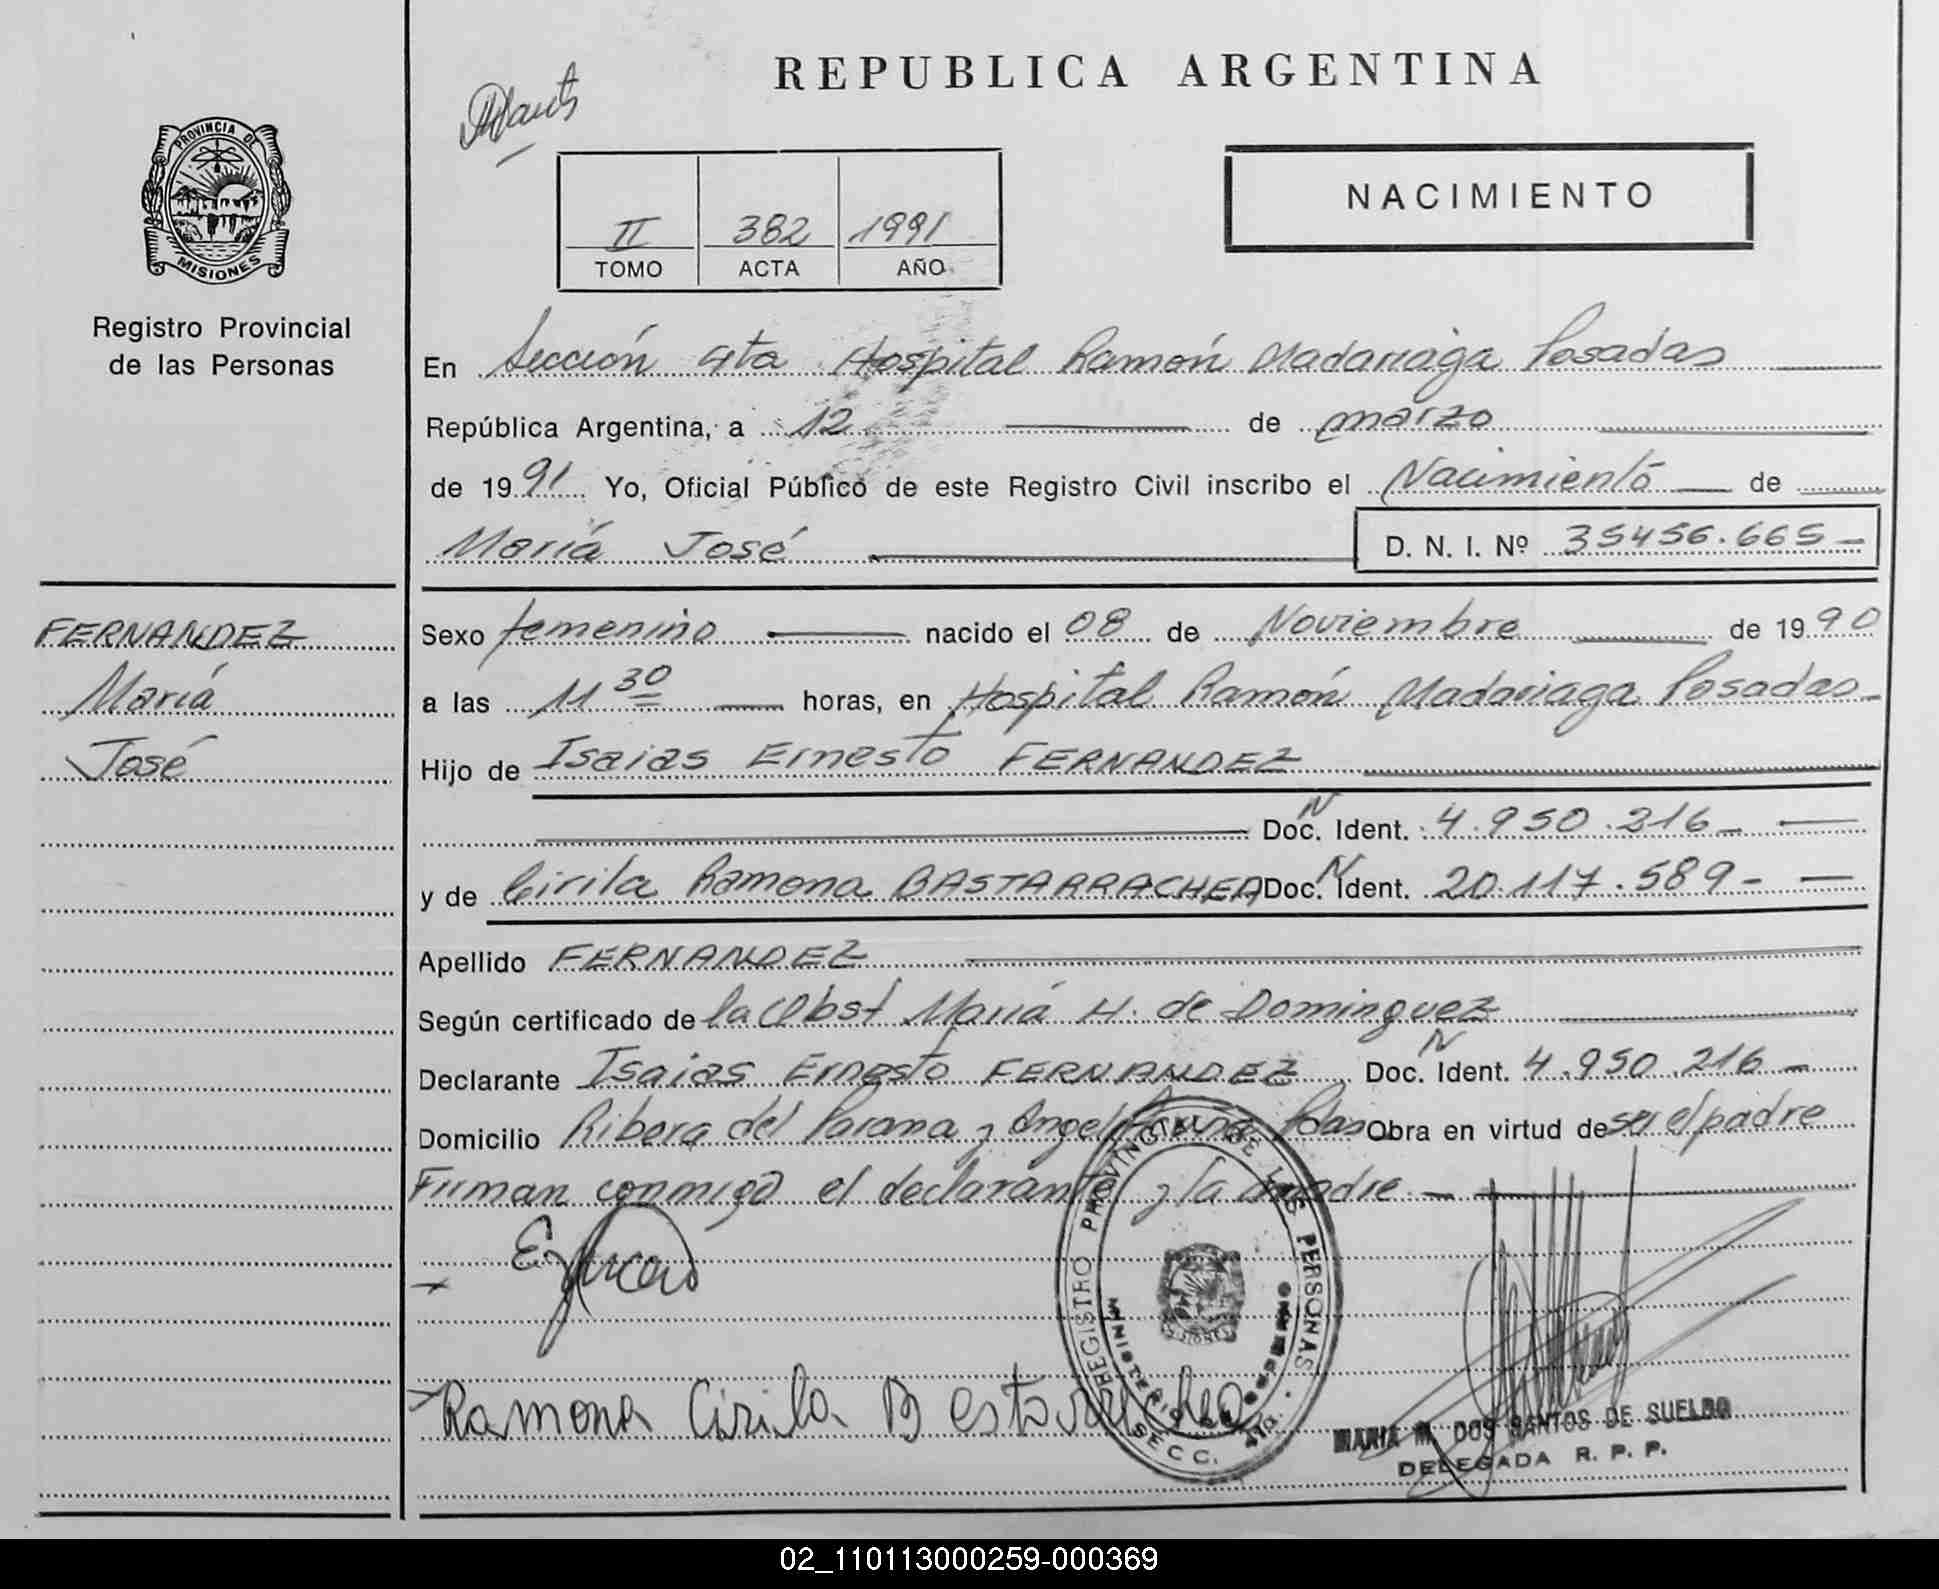 REPUBLICA ARGENTINA
PROVINCIA DE
MISIONES
Registro Provincial
de las Personas
II 382 1991
TOMO ACTA AÑO
NACIMIENTO
En Sección 4ta Hospital Ramón Madariaga Posadas
República Argentina, a 12 de marzo
de 1991 Yo, Oficial Público de este Registro Civil inscribo el Nacimiento de
María José D. N. I. Nº 35456.665-
FERNANDEZ
María
José
Sexo femenino nacido el 08 de Noviembre de 1990
a las 11 30 horas, en Hospital Ramón Madariaga Posadas
Hijo de Isaias Ernesto FERNANDEZ
Doc. N Ident. 4.950.216-
y de Cirila Ramona BASTARRACHEA Doc. N Ident. 20.117.589-
Apellido FERNANDEZ
Según certificado de la Obst María H. de Dominguez
Declarante Isaias Ernesto FERNANDEZ Doc. N Ident. 4.950.216-
Domicilio Ribera del Parana y Angel Pdas Obra en virtud de ser el padre
Firman conmigo el declarante y la madre.-
Ramona Cirila
REGISTRO PROVINCIAL DE LAS PERSONAS
MINISTERIO DE GOBIERNO
SECC. 4ta.
MARIA M. DOS SANTOS DE SUELDO
DELEGADA R. P. P.
02_110113000259-000369